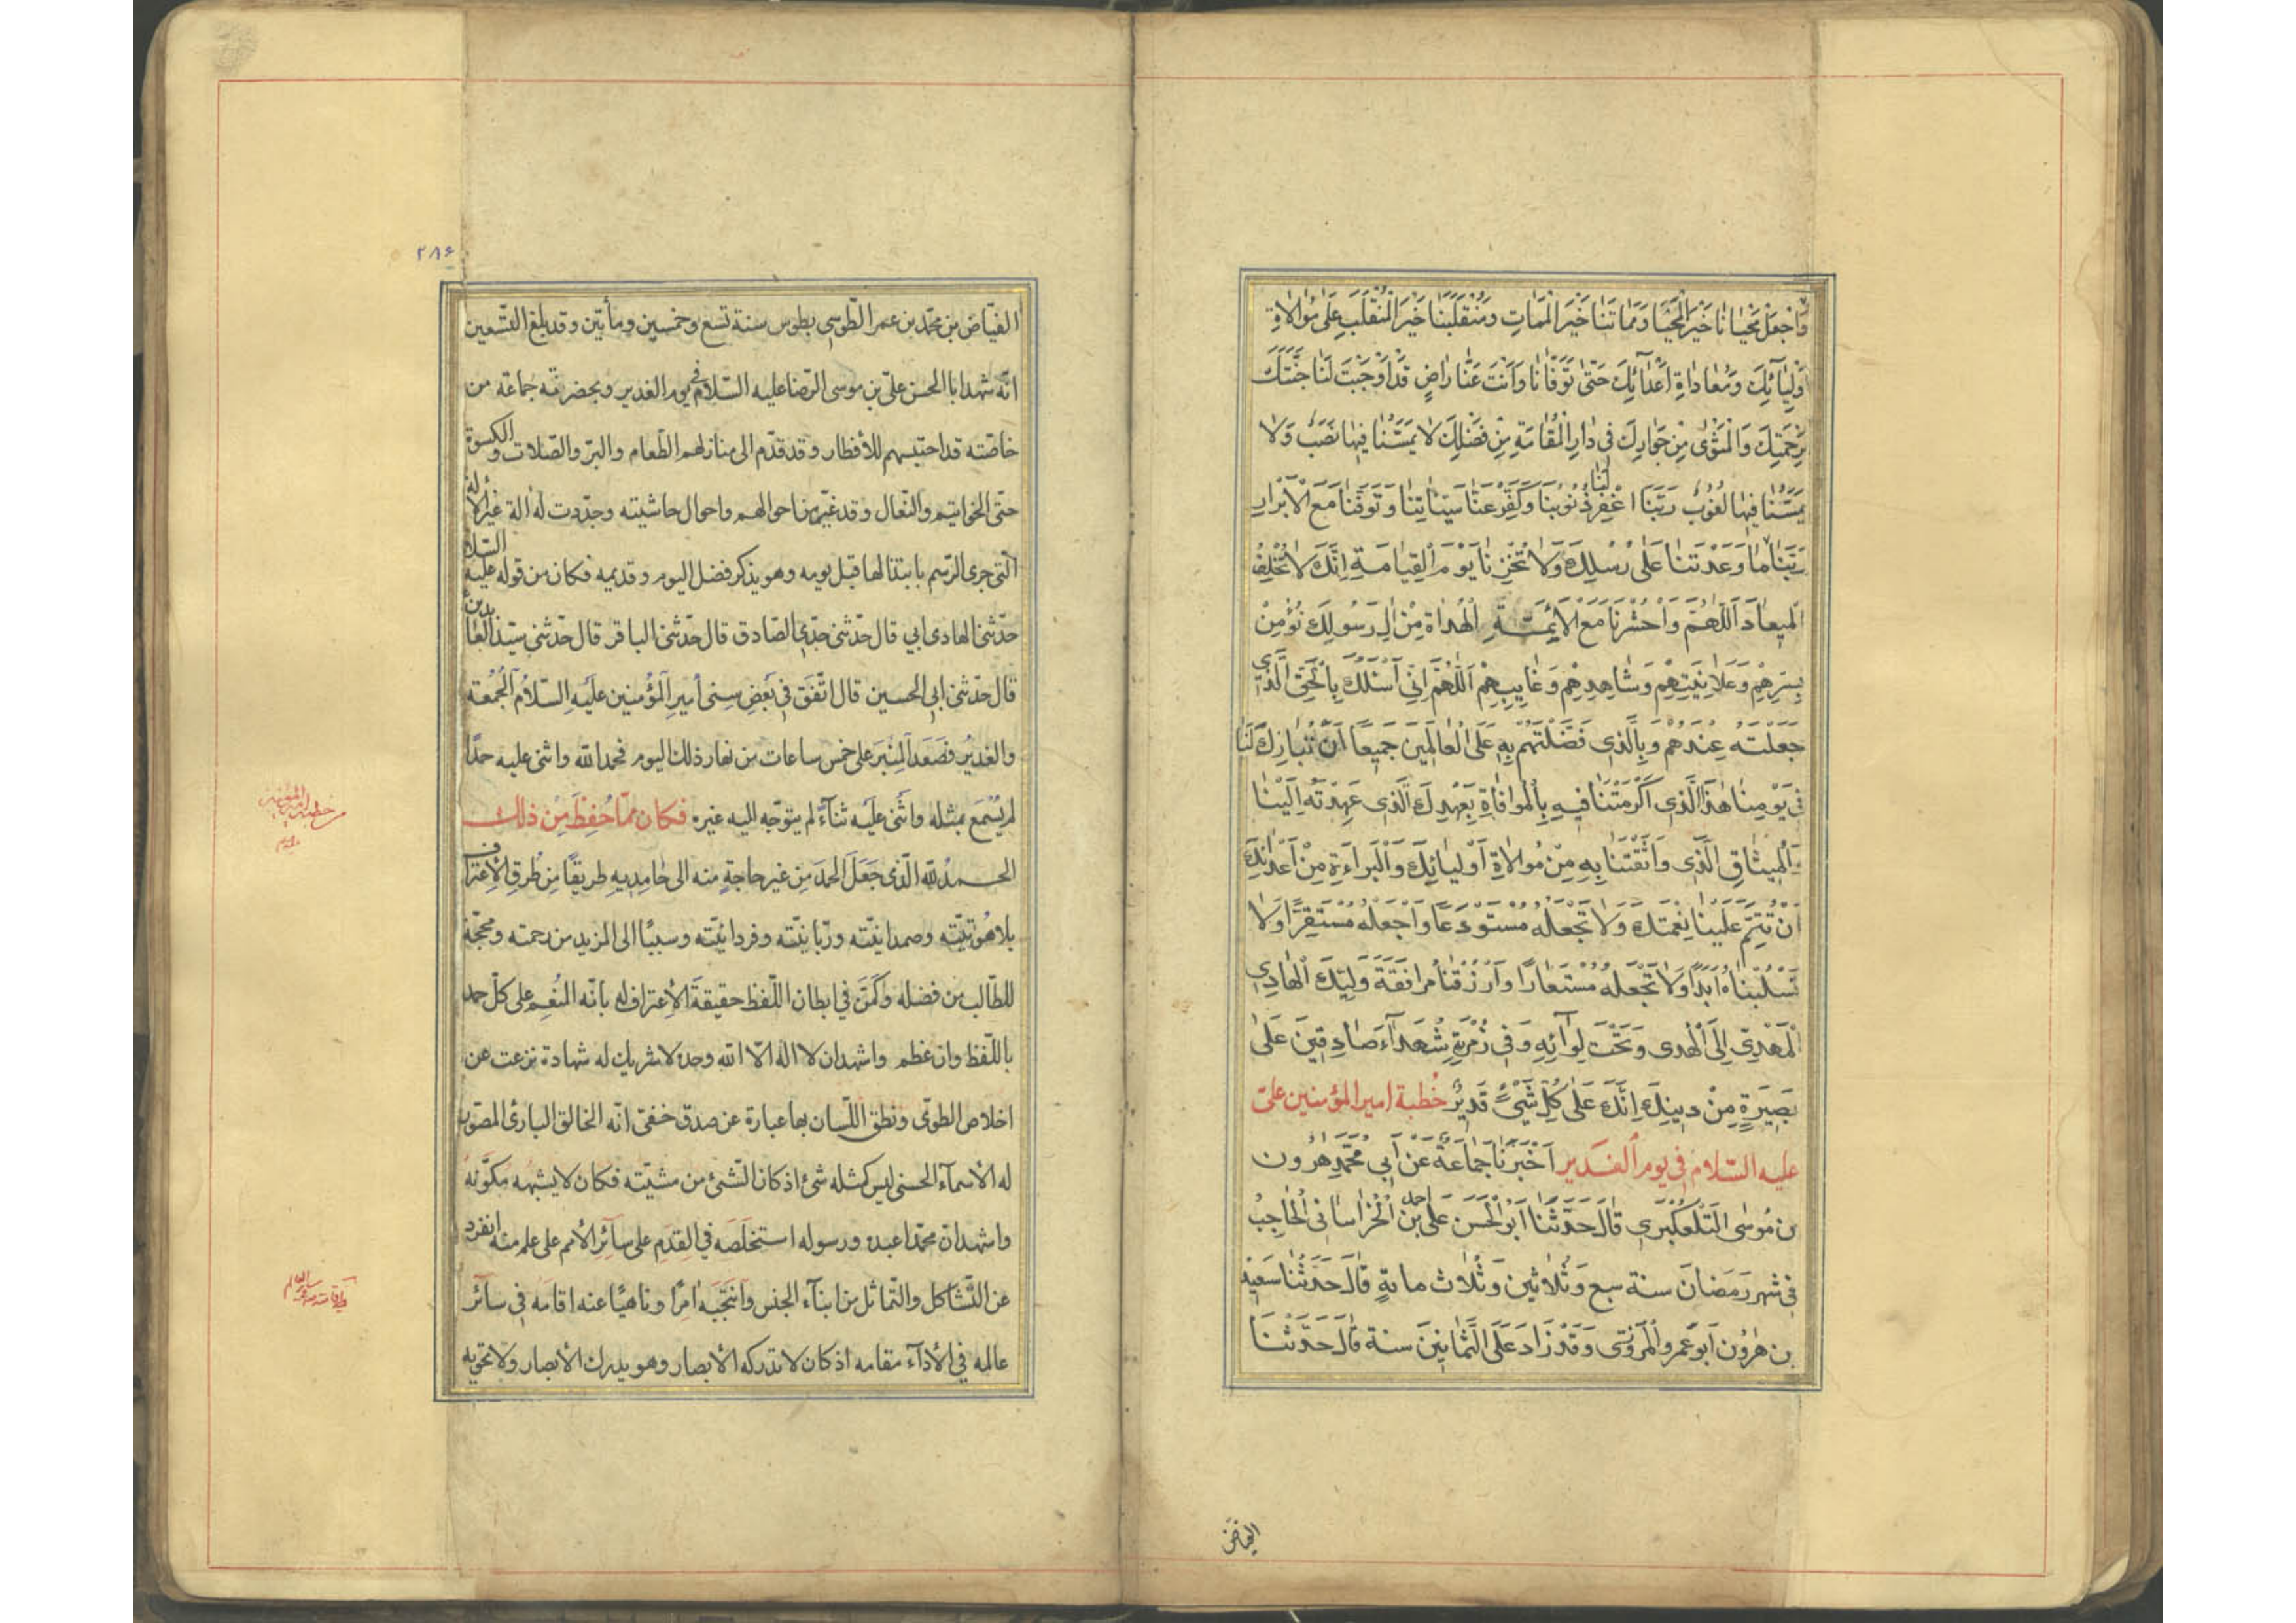 وَاجْعَلْ مَحْيَانَا خَيْرَ الْمَحْيَا وَمَمَاتَنَا خَيْرَ الْمَمَاتِ وَمُنْقَلَبَنَا خَيْرَ الْمُنْقَلَبِ عَلَى مُوَالَاةِ
أَوْلِيَائِكَ وَمُعَادَاةِ أَعْدَائِكَ حَتَّى تَوَفَّانَا وَأَنْتَ عَنَّا رَاضٍ قَدْ أَوْجَبْتَ لَنَا جَنَّتَكَ
بِرَحْمَتِكَ وَالْمَثْوَى مِنْ جَوَارِكَ فِي دَارِ الْمُقَامَةِ مِنْ فَضْلِكَ لَا يَمَسُّنَا فِيهَا نَصَبٌ وَلَا
يَمَسُّنَا فِيهَا لُغُوبٌ رَبَّنَا اغْفِرْ لَنَا ذُنُوبَنَا وَكَفِّرْ عَنَّا سَيِّئَاتِنَا وَتَوَفَّنَا مَعَ الْأَبْرَارِ
رَبَّنَا مَا وَعَدْتَنَا عَلَى رُسُلِكَ وَلَا تُخْزِنَا يَوْمَ الْقِيَامَةِ إِنَّكَ لَا تُخْلِفُ
الْمِيعَادَ اللَّهُمَّ وَاحْشُرْنَا مَعَ الْأَئِمَّةِ الْهُدَاةِ مِنْ آلِ رَسُولِكَ نُؤْمِنُ
بِسِرِّهِمْ وَعَلَانِيَتِهِمْ وَشَاهِدِهِمْ وَغَايِبِهِمْ اللَّهُمَّ إِنِّي أَسْئَلُكَ بِالْحَقِّ الَّذِي
جَعَلْتَهُ عِنْدَهُمْ وَبِالَّذِي فَضَّلْتَهُمْ بِهِ عَلَى الْعَالَمِينَ جَمِيعًا أَنْ تُبَارِكَ لَنَا
فِي يَوْمِنَا هَذَا الَّذِي أَكْرَمْتَنَا فِيهِ بِالْمُوَافَاةِ بِعَهْدِكَ الَّذِي عَهِدْتَهُ إِلَيْنَا
وَالْمِيثَاقِ الَّذِي وَاثَقْتَنَا بِهِ مِنْ مُوَالَاةِ أَوْلِيَائِكَ وَالْبَرَاءَةِ مِنْ أَعْدَائِكَ
أَنْ تُتِمَّ عَلَيْنَا نِعْمَتَكَ وَلَا تَجْعَلَهُ مُسْتَوْدَعًا وَاجْعَلْهُ مُسْتَقِرًّا وَلَا
تَسْلُبْنَاهُ أَبَدًا وَلَا تَجْعَلْهُ مُسْتَعَارًا وَارْزُقْنَا مُرَافَقَةَ وَلِيِّكَ الْهَادِي
الْمَهْدِيِّ إِلَى الْهُدَى وَتَحْتَ لِوَائِهِ وَفِي زُمْرَتِهِ شُهَدَاءَ صَادِقِينَ عَلَى
بَصِيرَةٍ مِنْ دِينِكَ إِنَّكَ عَلَى كُلِّ شَيْءٍ قَدِيرٌ خُطبة امير المؤمنين علىّ
عليه السّلام في يوم الغدير أَخْبَرَنَا جَمَاعَةٌ عَنْ أَبِي مُحَمَّدٍ هَرُونَ
بن مُوسَى التَّلْعُكْبَرِي قَالَ حَدَّثَنَا أَبُو الْحَسَنِ عَلِيُّ بْنُ احمد الْخُرَاسَانِي الْحَاجِبُ
فِي شهر رَمَضَانَ سنة سبع وَثَلَاثِينَ وَثَلَاث مائةٍ قَالَ حَدَّثَنَا سَعِيدُ
بن هَرُونَ أَبُو عَمْرٍو الْمَرْوَزِي وَقَدْ زَادَ عَلَى الثَّمَانِينَ سنة قَالَ حَدَّثَنَا
الفيّاض
٢٨۶
الفيّاض بن محمّد بن عمر الطّوسى بطوس سنة تسع وخمسين ومأتين وقد بلغ التّسعين
انّه شهد ابا الحسن علىّ بن موسى الرّضا عليه السّلام في يوم الغدير وبحضرته جماعة من
خاصّته قد احتبسهم للأفطار وقد قدّم الى منازلهم الطّعام والبرّ والصّلات والكسوة
حتّى الخواتيم والنّعال وقد غيّر من احوالهم واحوال حاشيته وجدّدت له آلة غير الآلة
الّتى جرى الرّسم بابتذالها قبل يومه وهو يذكر فضل اليوم وقديمه فكان من قوله عليه السّلام
حدّثنى الهادى ابى قال حدّثنى جدّى الصّادق قال حدّثنى الباقر قال حدّثنى سيّد العابدين
قال حدّثنى ابى الحسين قال اتّفق في بَعْضِ سِنى أميرِ المؤمنين عَلَيْهِ السّلامُ الجُمُعة
والغديرُ فصَعَدَ المِنْبَرَ على خمس ساعات من نهار ذلك اليوم فحمد الله واثنى عليه حمدًا
لم يُسْمَع بمثله واثنى عليه ثناءً لم يتوجّه اليه غيره فكان ممّا حُفِظَ مِن ذلك
الحمدُ للهِ الّذى جَعَلَ الحمدَ مِن غير حاجةٍ منه الى حامديهِ طريقًا مِن طُرقِ الاِعتراف
بلاهُوتيّته وصمدانيّته وربّانيّته وفردانيّته وسببًا الى المزيد من رحمته ومحجّة
للطّالب من فضله وكَمَّنَ في ابطان اللّفظ حقيقةَ الاِعترافِ له بانّه المنُعِم على كلّ حمد
باللّفظ وان عظم واشهد ان لا اله الّا الله وحده لا شريك له شهادة نزعت عن
اخلاص الطوّى ونطق اللّسان بها عبارة عن صدق خفىّ انّه الخالق البارئ المصّور
له الأسمآء الحسنى ليس كمثله شئ اذ كان الشّئ من مشيّته فكان لا يشبهه مكوَّنهُ
واشهد ان محمّدا عبده ورسوله استخلَصَه في القِدَمِ على سآئِرِ الأمم على علم منه انفرد
عن التّشاكل والتّماثل من ابنآء الجنس وانتَجَبَه امِرًا وناهيًا عنه اقامه في سآئر
عالمه في الأدآء مقامه اذ كان لا تدركه الأبصار وهو يدرك الأبصار ولا تحويه